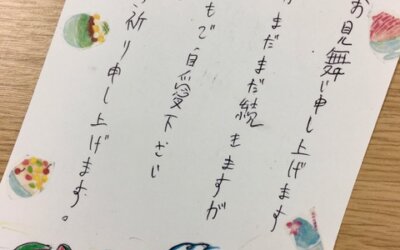 お見舞い申し上げます
まだまだ続きますが
もご自愛下さい
祈り申し上げます。